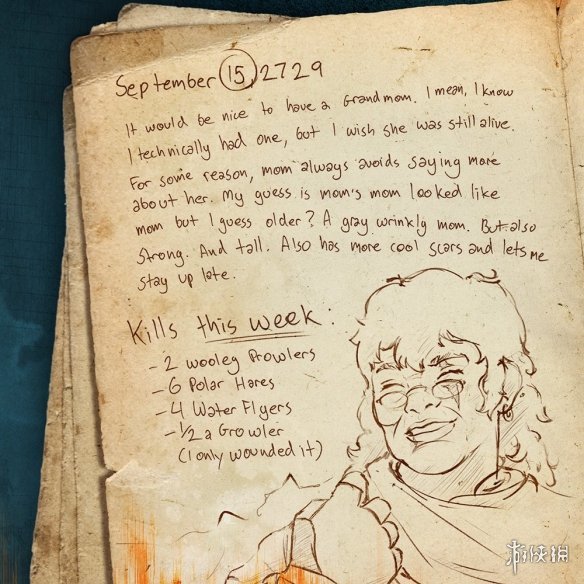 September 15, 2729
It would be nice to have a Grandmom. I mean, I know
I technically had one, but I wish she was still alive.
For some reason, mom always avoids saying more
about her. My guess is mom's mom looked like
mom but I guess older? A gray wrinkly mom. But also
strong. And tall. Also has more cool scars and lets me
stay up late.
Kills this week:
- 2 wooleg Prowlers
- 6 Polar Hares
- 4 Water Flyers
- 1/2 a Growler
(I only wounded it)
游侠网